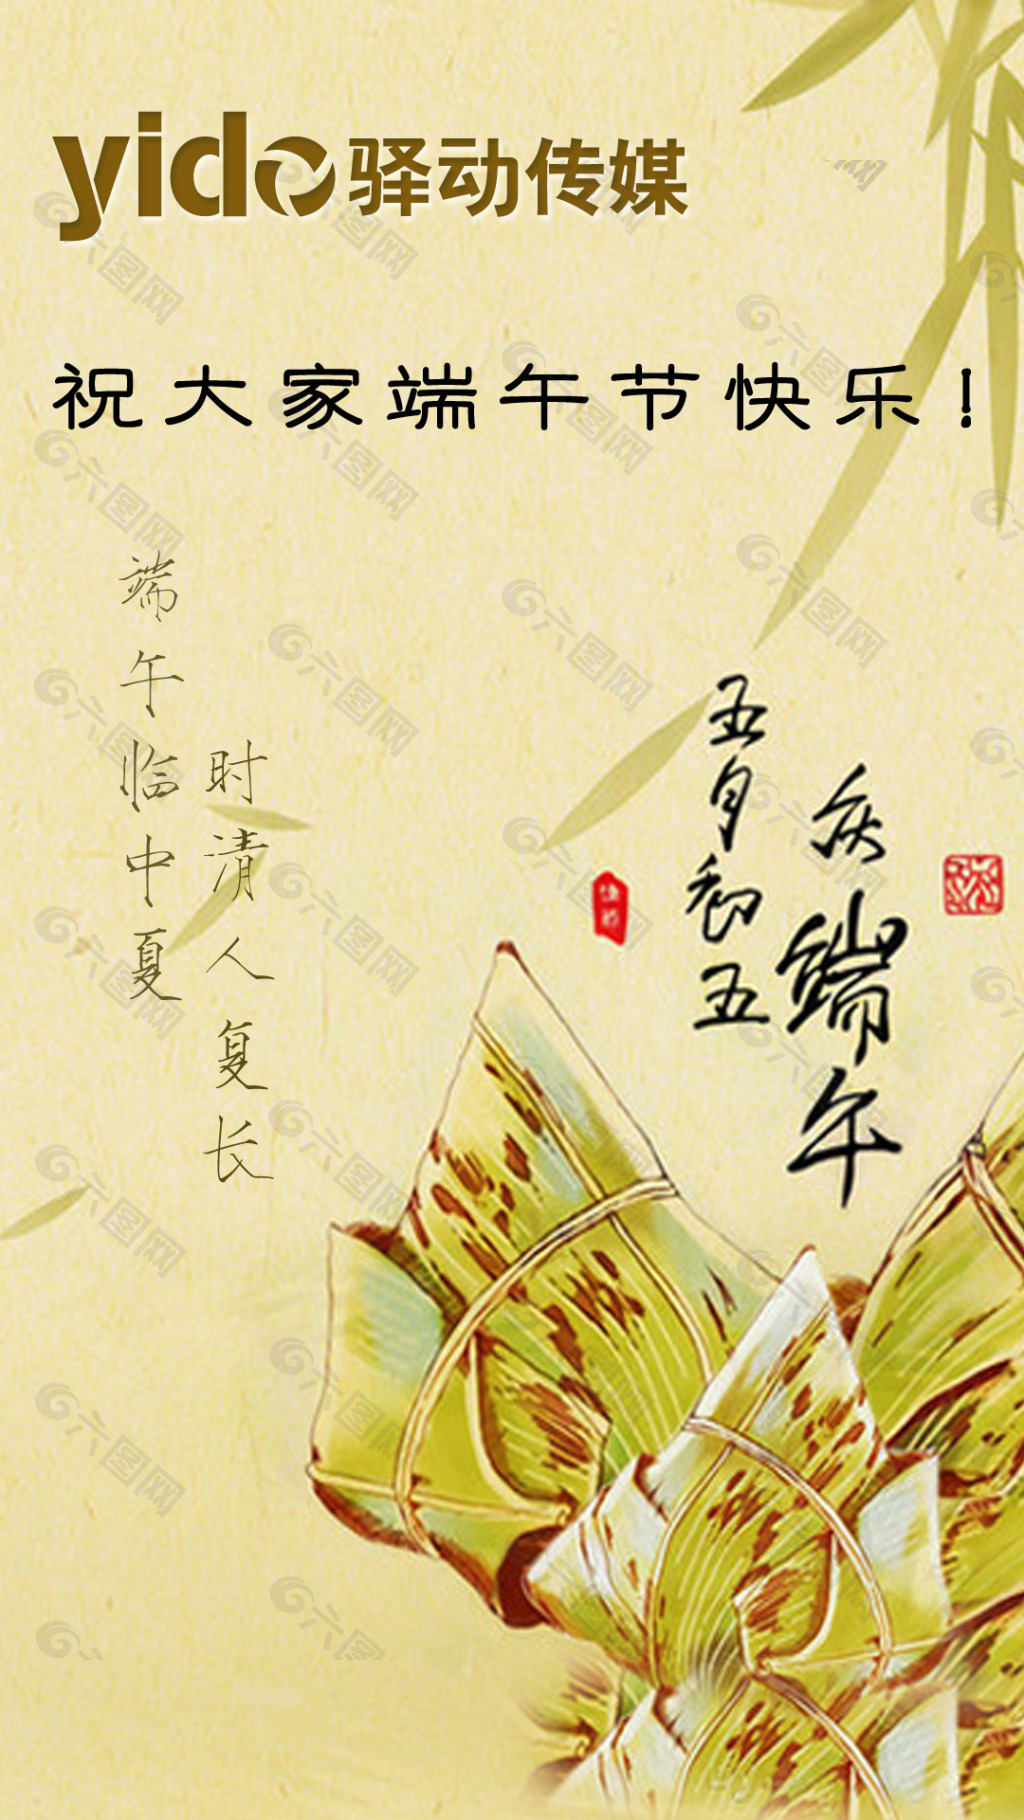 yido驿动传媒
祝大家端午节快乐！
端午临中夏
时清人复长
五月初五
庆端午
六图网